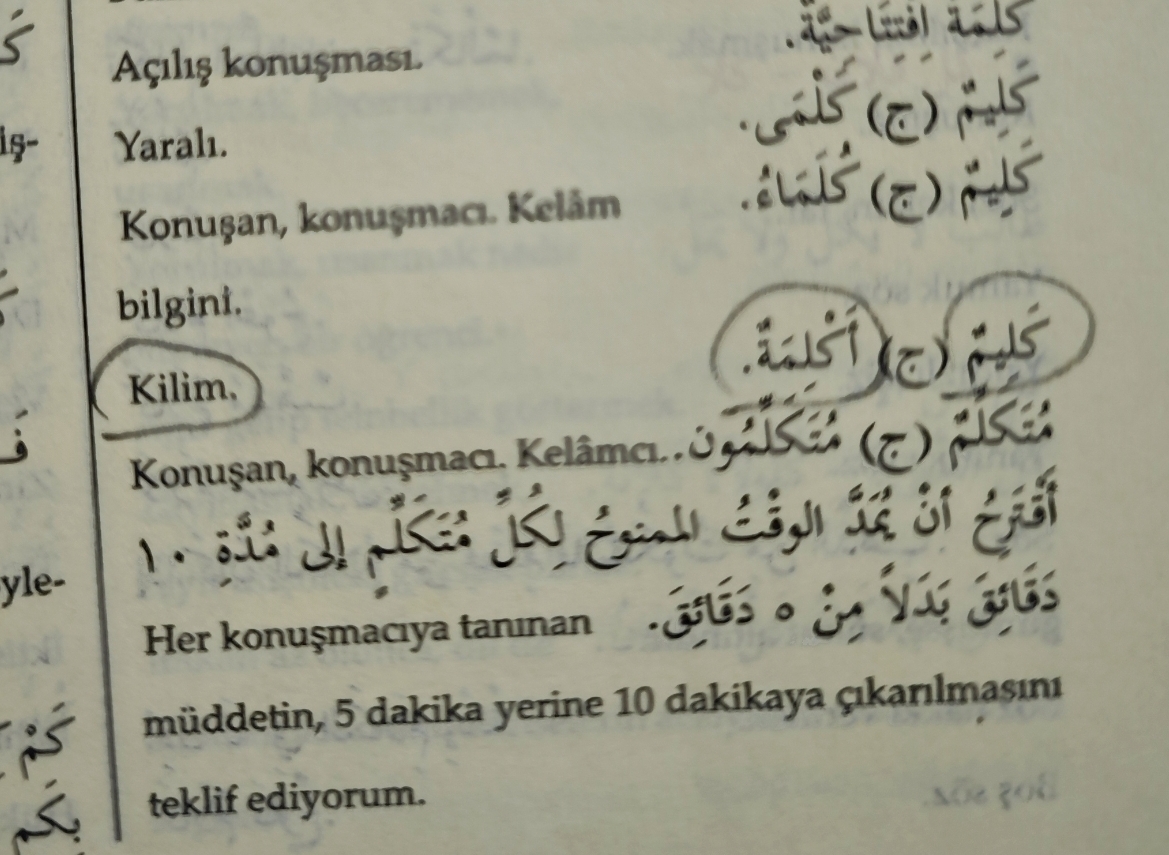 كَلِمَةٌ اِفْتِتَاحِيَّةٌ.
Açılış konuşması.
كَلِيمٌ (ج) كَلْمَى.
Yaralı.
كَلِيمٌ (ج) كُلَمَاءُ.
Konuşan, konuşmacı. Kelâm
bilgini.
كَلِيمٌ (ج) أَكْلِمَةٌ.
Kilim.
مُتَكَلِّمٌ (ج) مُتَكَلِّمُون..
Konuşan, konuşmacı. Kelâmcı.
أَقْتَرِحُ أنْ يُمَدَّ الوقْتُ الممنوحُ لِكُلِّ مُتَكَلِّمٍ إلى مُدَّةِ ١٠
دَقَائِقَ بَدَلاً مِنْ ٥ دَقَائِقَ.
Her konuşmacıya tanınan
müddetin, 5 dakika yerine 10 dakikaya çıkarılmasını
teklif ediyorum.
iş-
yle-
كَمْ
بِكَم